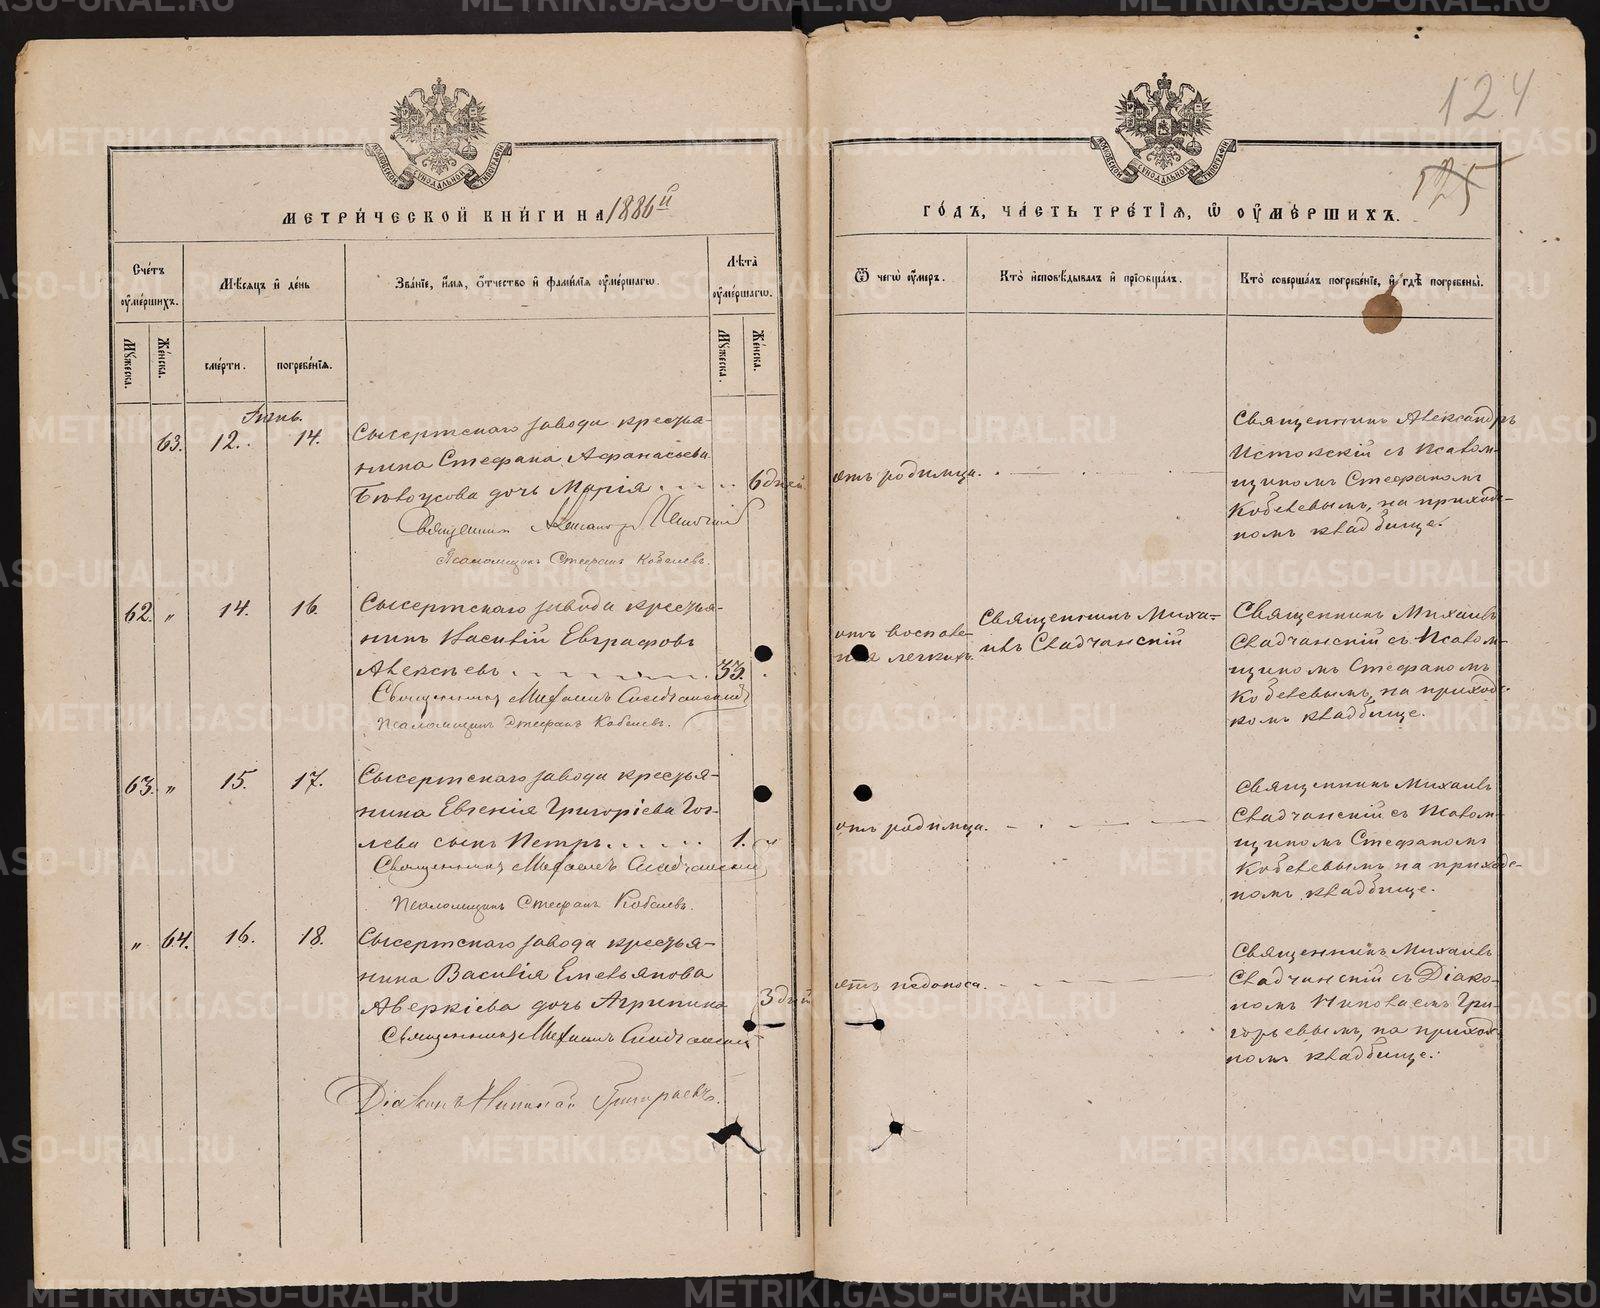 124
125
МЕТРИ́ЧЕСКОЙ КНИ́ГИ НА 1886й
ГО́ДЪ, ЧА́СТЬ ТРЕ́ТІѦ, Ѿ ОУМЕ́РШИХЪ.
Сче́тъ оумершихъ.
Мѣсяцъ и де́нь
Зва́ніе, и́мя, о́тчество и фами́лія оуме́ршагѡ.
Лѣта̀ оуме́ршагѡ.
Мꙋжеска.
Же́нска.
сме́рти.
погребе́нія.
Мꙋжеска.
Же́нска.
Ѿ чегѡ̀ оу́меръ.
Кто̀ исповѣ́дывалъ и пріобща́лъ.
Кто̀ соверша́лъ погребе́ніе, и гдѣ̀ погребены̀.
Іюнь.
63. 12. 14.
Сысертскаго завода крестья-
нина Стефана Аѳанасьева
Бѣлоусова дочь Марія . . . . . 6 дней
Священникъ Александръ Истокскій
Псаломщикъ Стефанъ Кобелевъ.
отъ родимца.
Священникъ Александръ
Истокскій съ Псалом-
щикомъ Стефаномъ
Кобелевымъ, на приход-
комъ кладбище.
62. " 14. 16.
Сысертскаго завода крестья-
нинъ Василій Евграфовъ
Алексѣевъ . . . . . . . 33.
Священникъ Михаилъ Сладчанскій
Псаломщикъ Стефанъ Кобелевъ.
отъ воспале-
нія легкихъ.
Священникъ Миха-
илъ Сладчанскій
Священникъ Михаилъ
Сладчанскій съ Псалом-
щикомъ Стефаномъ
Кобелевымъ, на приход-
комъ кладбище.
63. " 15. 17.
Сысертскаго завода крестья-
нина Евгенія Григоріева Гог-
лева сынъ Петръ . . . . . 1. г
Священникъ Михаилъ Сладчанскій
Псаломщикъ Стефанъ Кобелевъ.
отъ родимца.
Священникъ Михаилъ
Сладчанскій съ Псалом-
щикомъ Стефаномъ
Кобелевымъ на приход-
комъ кладбище.
" 64. 16. 18.
Сысертскаго завода крестья-
нина Василія Емельянова
Аверкіева дочь Агрипина 3 дней
Священникъ Михаилъ Сладчанскій
Діаконъ Николай Григорьевъ.
отъ недоноса.
Священникъ Михаилъ
Сладчанскій съ Діако-
номъ Николаемъ Гри-
горьевымъ, на приход-
комъ кладбище.
METRIKI.GASO-URAL.RU